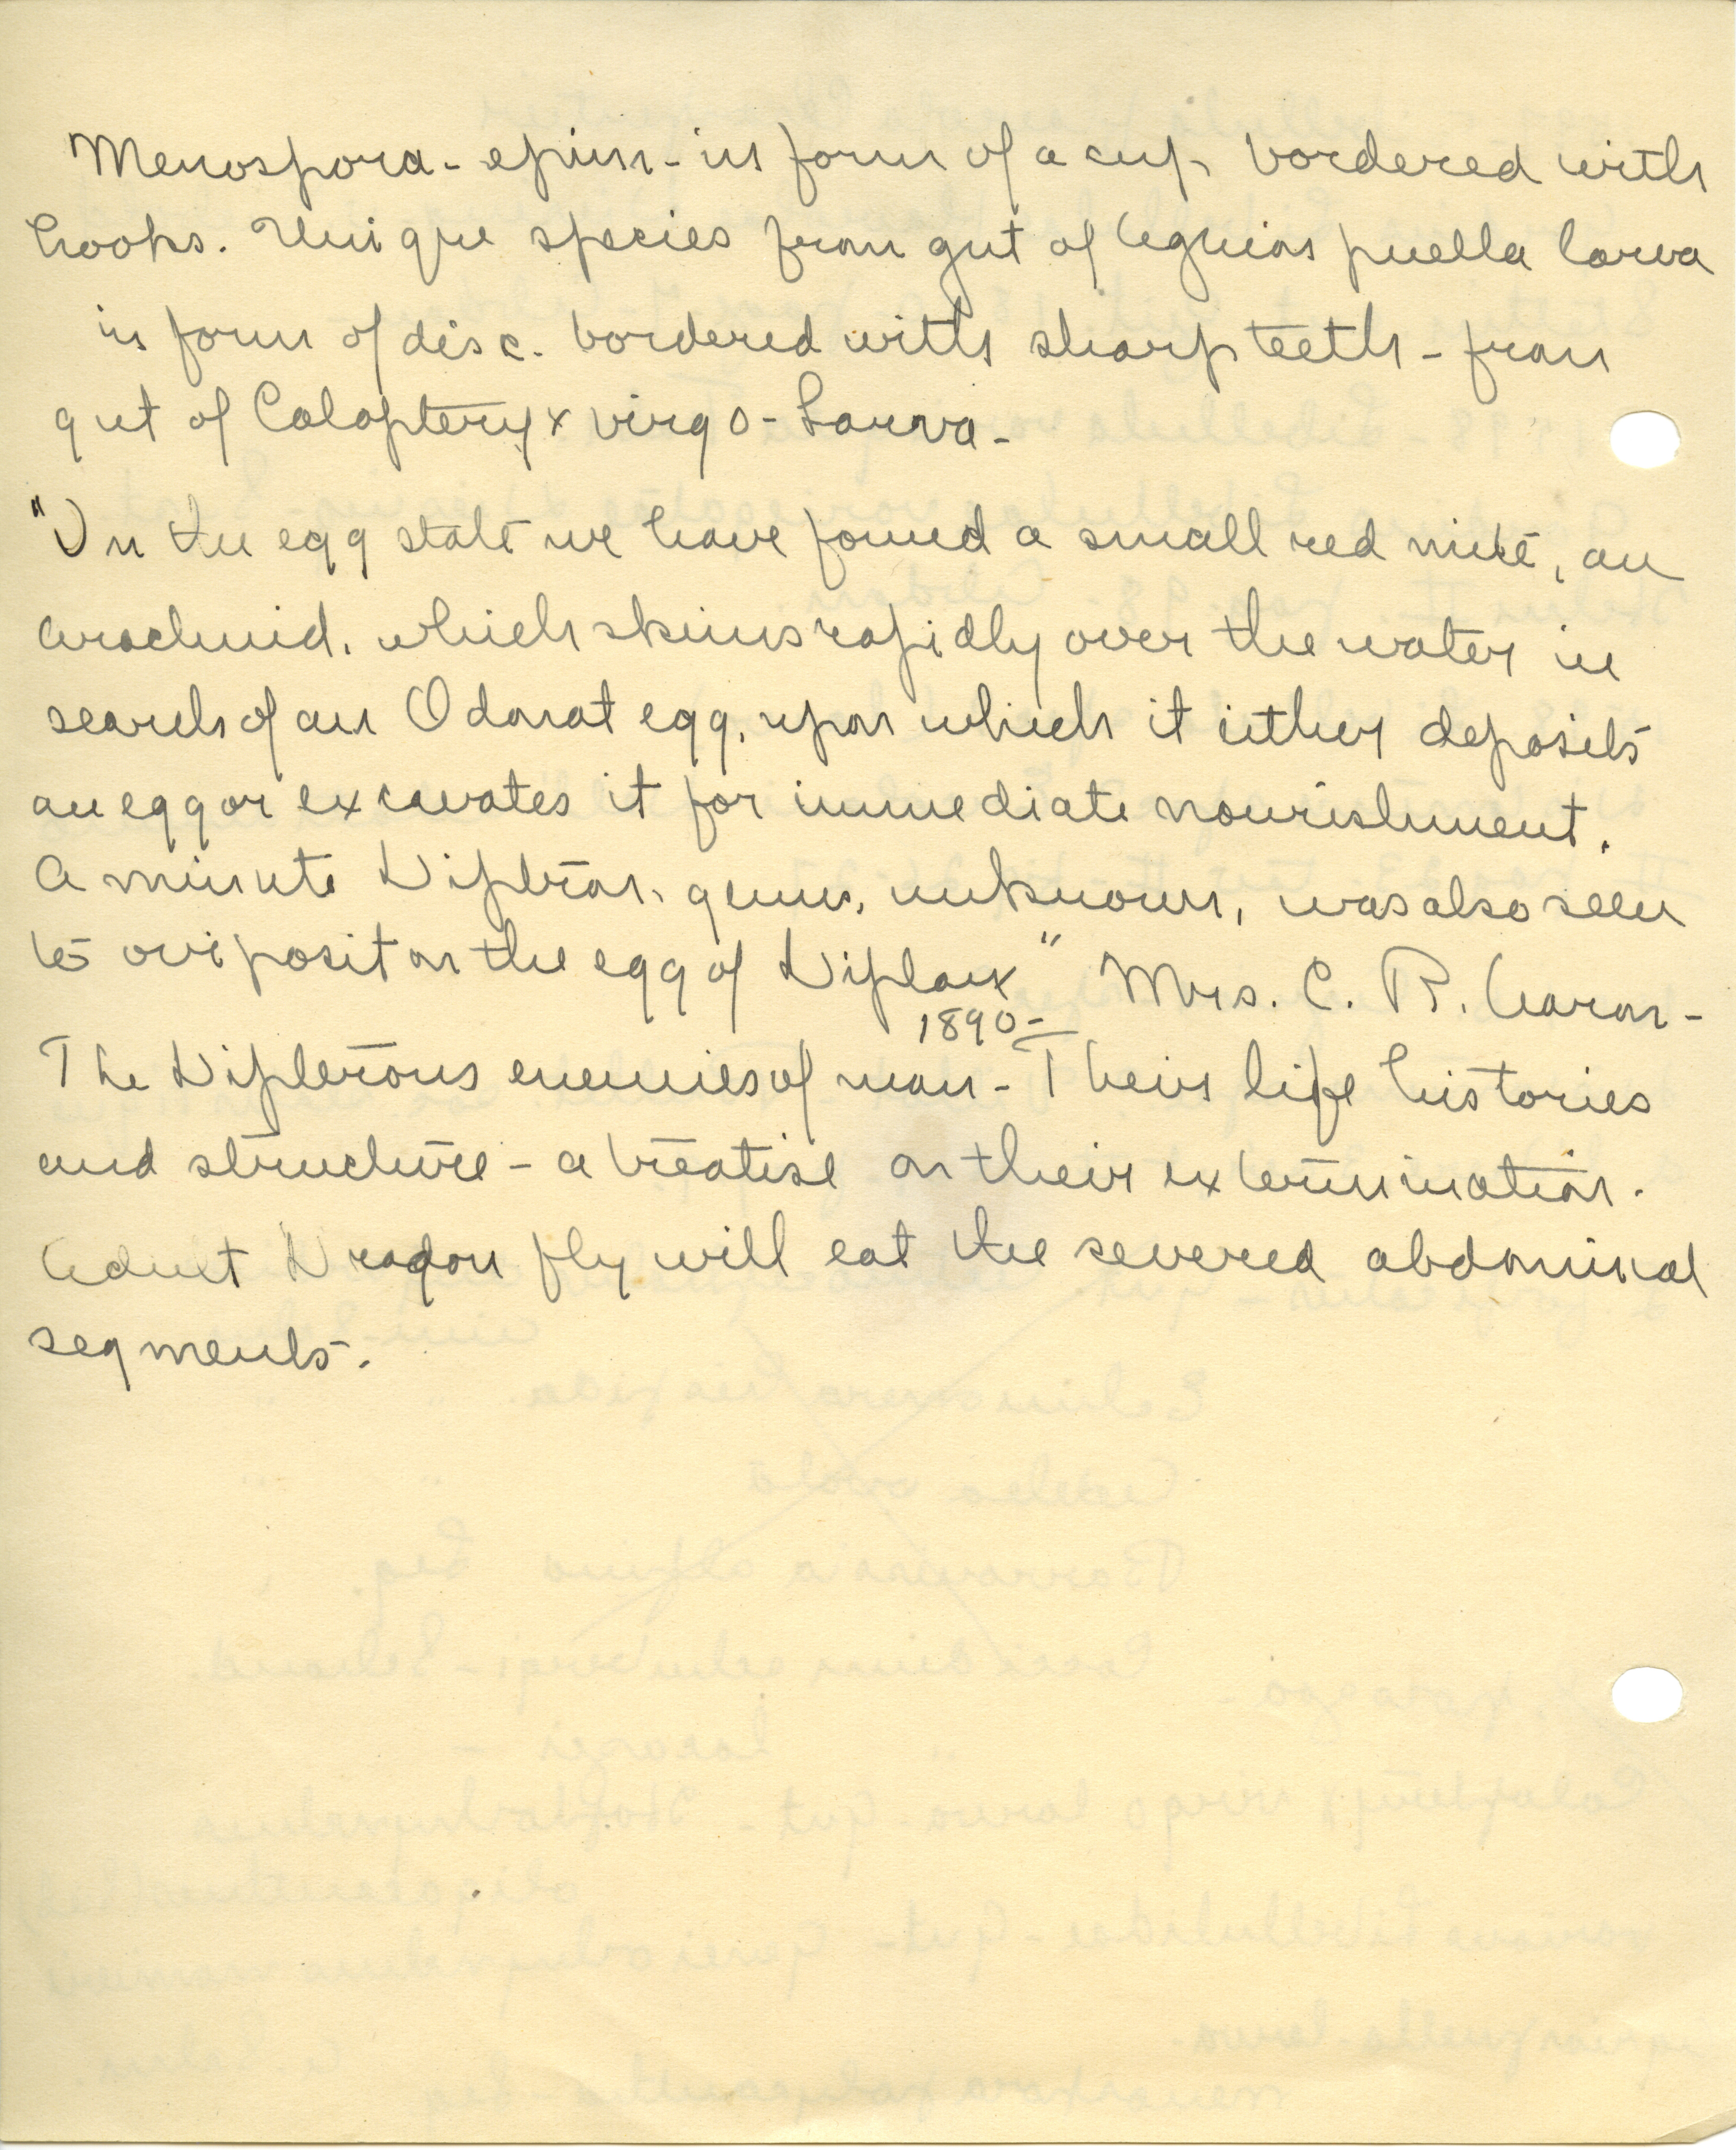 Menospora - epim - in form of a cup bordered with
hooks. Unique species from gut of Agrion puella larva
in form of disc. bordered with sharp teeth - from
gut of Calopteryx virgo - Larva -
"In the egg state we have found a small red mite, an
arachnid, which skims rapidly over the water in
search of an Odonat egg, upon which it either deposits
an egg or excavates it for immediate nourishment.
A minute Dipteron, genus, unknown, was also seen
to oviposit on the egg of Diplax" Mrs. C. B. Aaron -
1890 -
The Dipterous enemies of man - Their life histories
and structure - a treatise on their extermination.
Adult Dragon fly will eat the severed abdominal
segments.